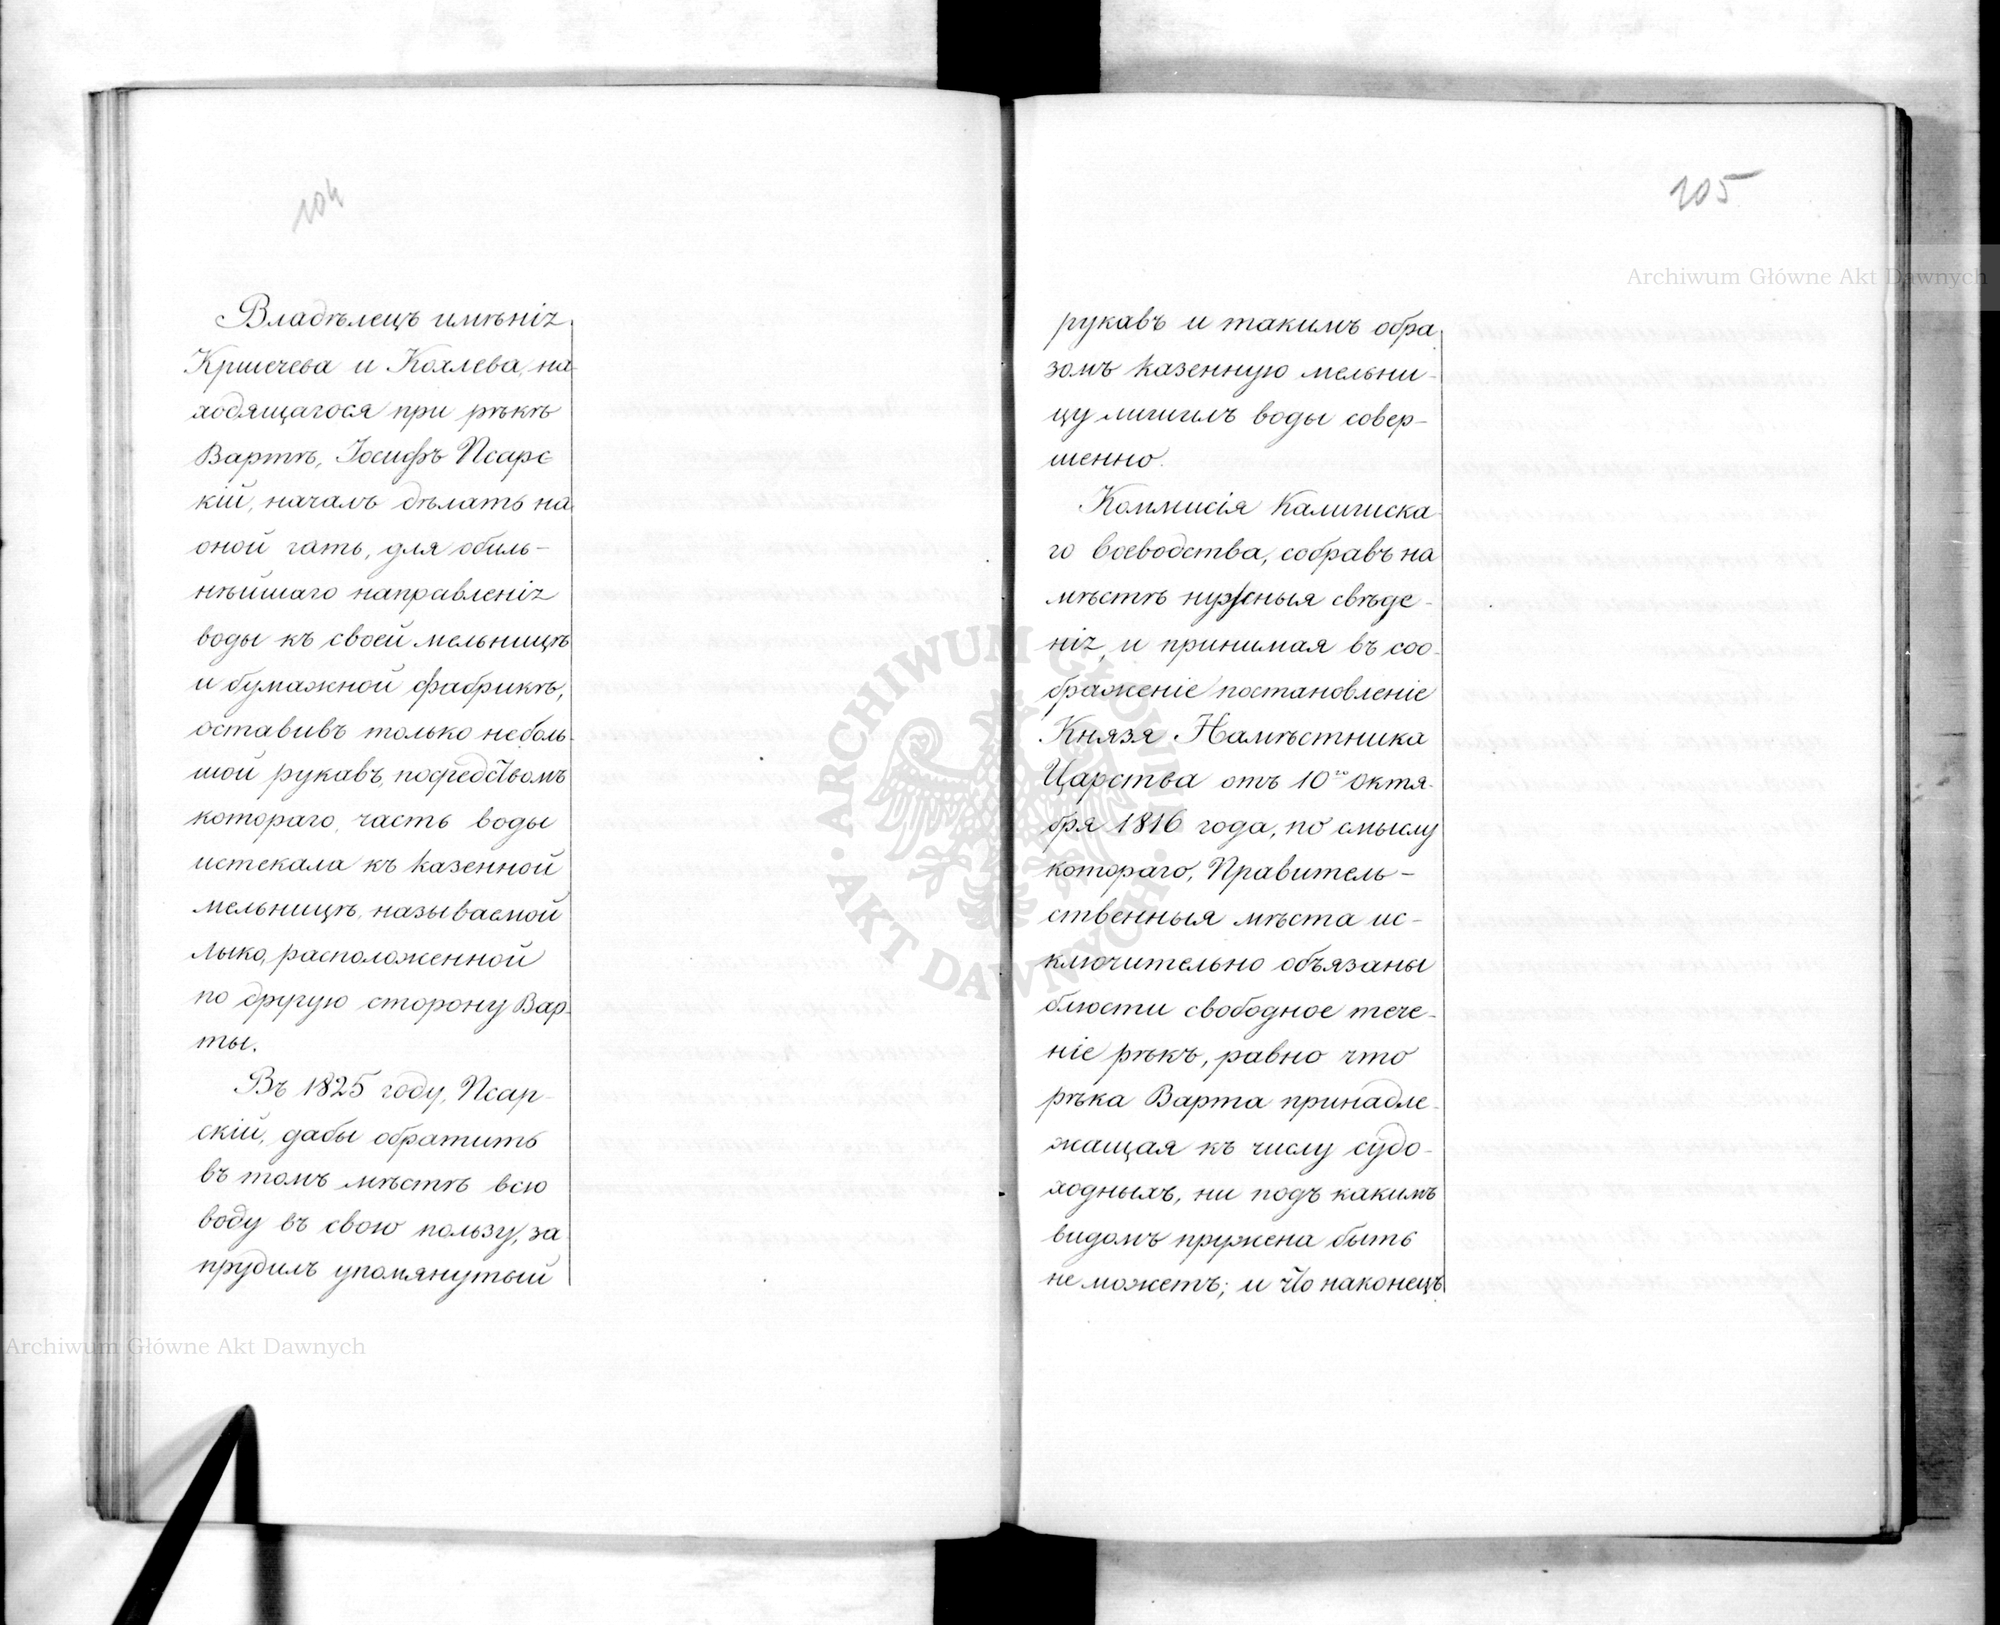 104
Владѣлецъ имѣнія
Кршечева и Кохлева, на-
ходящагося при рѣкѣ
Вартѣ, Іосифъ Псарс
кій, началъ дѣлать на
оной гать, для обиль-
нѣйшаго направленія
воды къ своей мельницѣ
и бумажной фабрикѣ,
оставивъ только неболь-
шой рукавъ, посредствомъ
котораго, часть воды
истекала къ казенной
мельницѣ, называемой
Лыко, расположенной
по другую сторону Вар-
ты.
Въ 1825 году, Псар-
скій, дабы обратить
въ томъ мѣстѣ всю
воду въ свою пользу, за
прудилъ упомянутый
105
рукавъ и такимъ обра
зомъ казенную мельни-
цу лишилъ воды совер-
шенно.
Коммисія Калишска-
го воеводства, собравъ на
мѣстѣ нужныя свѣде-
нія, и принимая въ соо-
браженіе постановленіе
Князя Намѣстника
Царства отъ 10го Октя-
бря 1816 года, по смыслу
котораго, Правитель-
ственныя мѣста ис-
ключительно объязаны
блюсти свободное тече-
ніе рѣкъ, равно что
рѣка Варта принадле-
жащая къ числу судо-
ходныхъ, ни подъ какимъ
видомъ пружена быть
не можетъ; и что наконецъ
Archiwum Główne Akt Dawnych
Archiwum Główne Akt Dawnych
ARCHIWUM GŁÓWNE AKT DAWNYCH